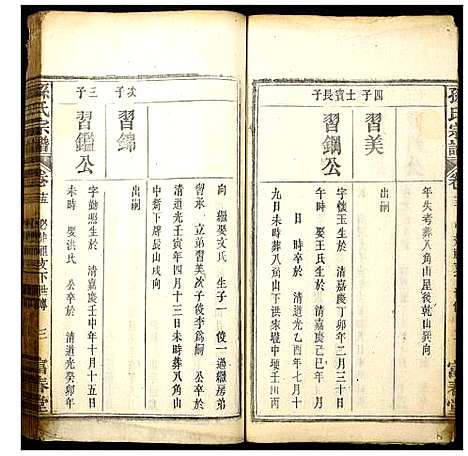 孫氏宗譜
富春堂
年失考葬八角山屋後乾山巽向
四子
習美
出嗣
士賓長子
習鋼公
字懷玉生於 清嘉慶丁卯年二月三十日
時 娶王氏生於 清嘉慶己巳年 月
日 時 公卒於 清道光乙酉年七月十
九日未時葬八角山下洪家壠中壋壬山丙
向 繼娶文氏 生子一 俊一過繼房弟
習承 立弟習美次子後李爲嗣 公卒於
清道光壬寅年四月十三日未時葬八角山
中嘴下屏長山戌向
次子
習錦
出嗣
三子
習鑑公
字勤照生於 清嘉慶壬申年十月十五日
未時 娶洪氏 公卒於 清道光癸卯年
孫氏宗譜
卷之
下世傳
三
富春堂